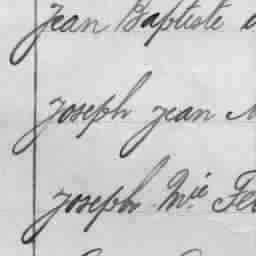 Jean Baptiste
Joseph Jean
Joseph Mie